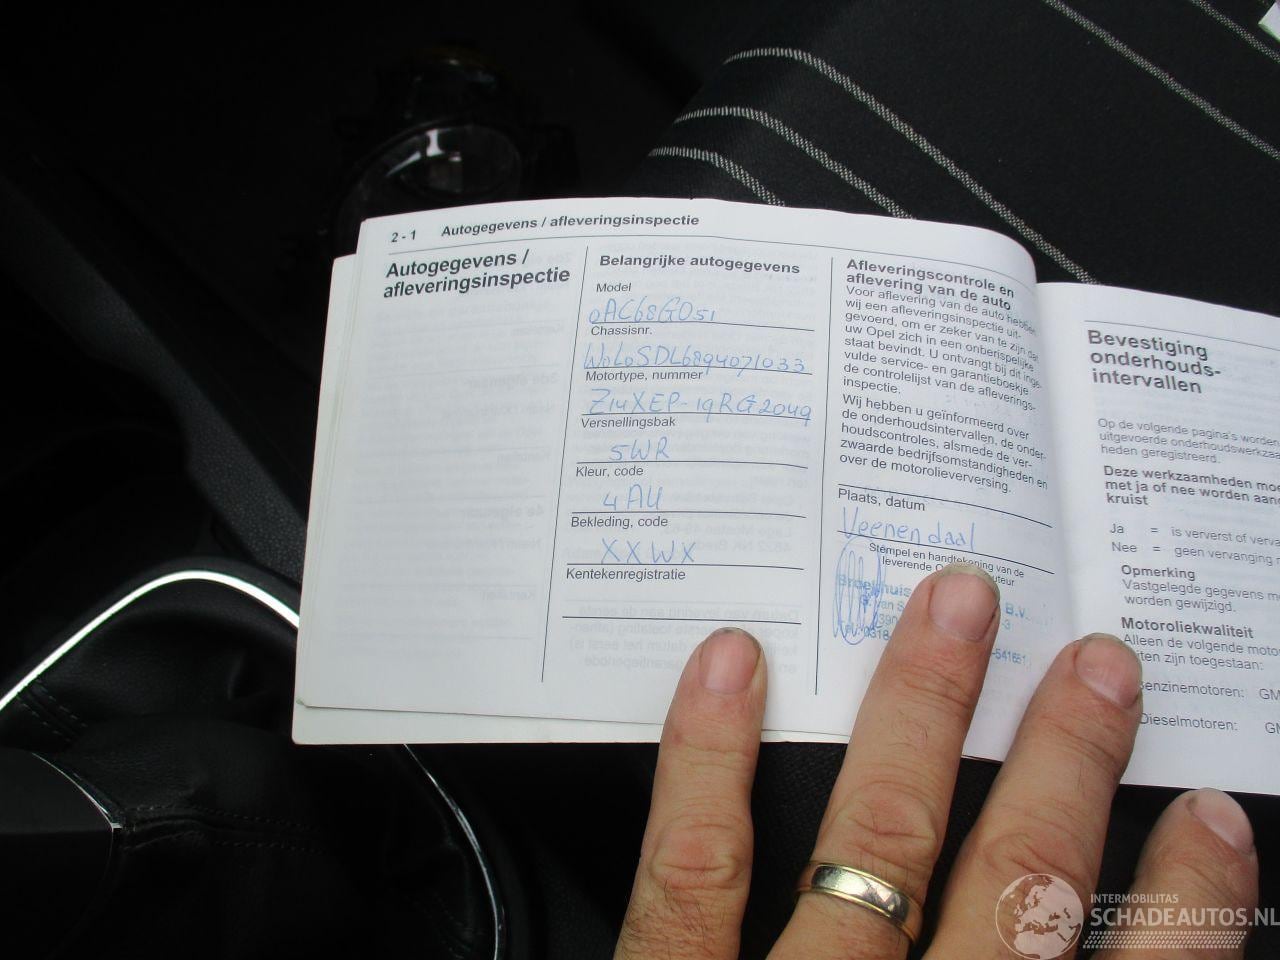 2 - 1 Autogegevens / afleveringsinspectie
Autogegevens /
afleveringsinspectie
Belangrijke autogegevens
Model
0AC68GO51
Chassisnr.
W0L0SDL6894071033
Motortype, nummer
Z14XEP-19RG2049
Versnellingsbak
5WR
Kleur, code
4AU
Bekleding, code
XXWX
Kentekenregistratie
Afleveringscontrole en
aflevering van de auto
Voor aflevering van de auto hebben
wij een afleveringsinspectie uit-
gevoerd, om er zeker van te zijn dat
uw Opel zich in een onberispelijke
staat bevindt. U ontvangt bij dit inge-
vulde service- en garantieboekje
de controlelijst van de afleverings-
inspectie.
Wij hebben u geïnformeerd over
de onderhoudsintervallen, de onder-
houdscontroles, alsmede de ver-
zwaarde bedrijfsomstandigheden en
over de motorolieverversing.
Plaats, datum
Veenendaal
Stempel en handtekening van de
leverende
Broekhuis B.V.
Tel.: 0318-
-541651
Bevestiging
onderhouds-
intervallen
Op de volgende pagina's worden
uitgevoerde onderhoudswerkzaam
heden geregistreerd.
Deze werkzaamheden moe
met ja of nee worden aang
kruist
Ja = is ververst of verva
Nee = geen vervanging n
Opmerking
Vastgelegde gegevens m
worden gewijzigd.
Motoroliekwaliteit
Alleen de volgende moto
iten zijn toegestaan:
Benzinemotoren: GM
Dieselmotoren: GM
INTERMOBILITAS
SCHADEAUTOS.NL